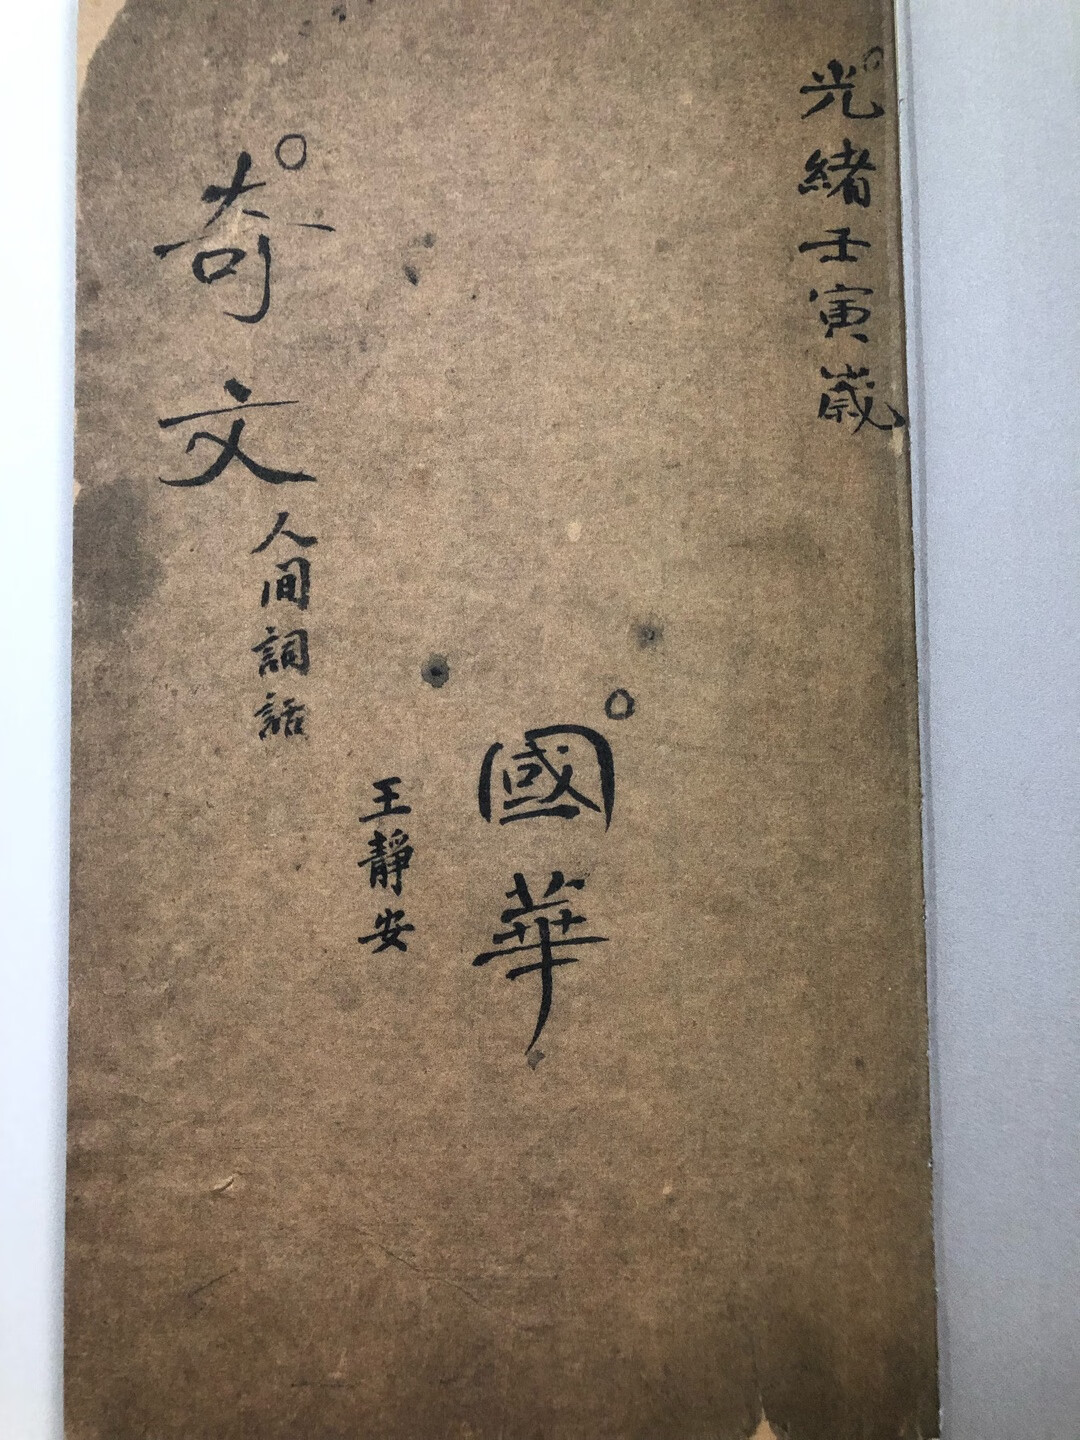 光緒壬寅歲
奇文
人间詞話
王靜安
國華